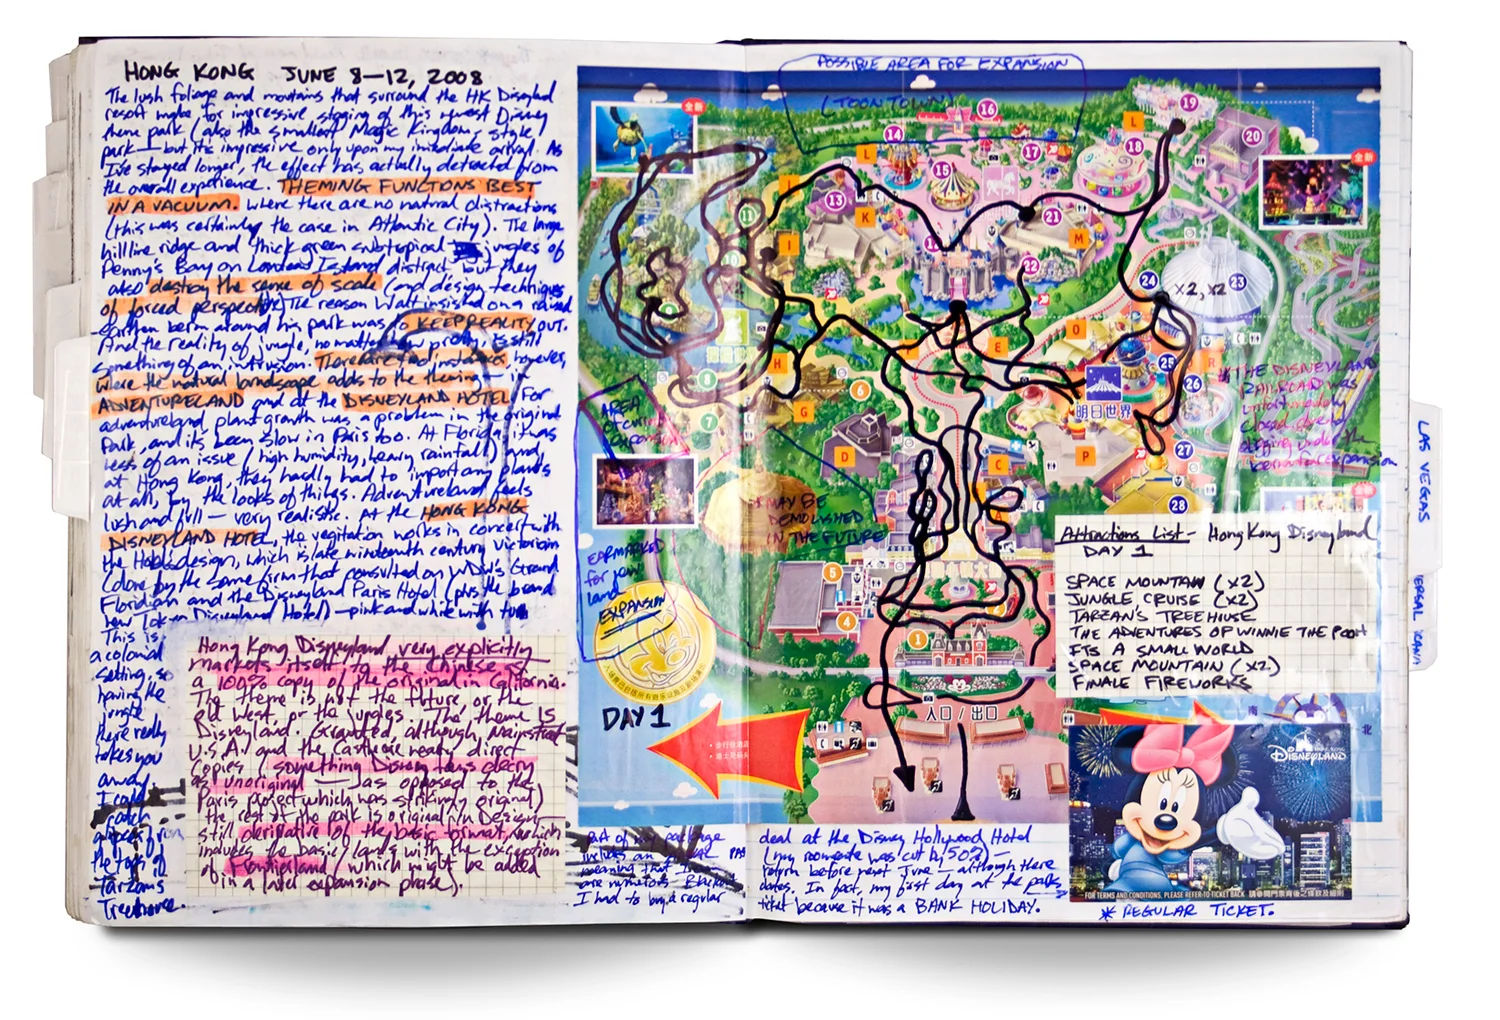 HONG KONG JUNE 8–12, 2008
The lush foliage and moutains that surround the HK Disneyland
resort make for impressive staging of this newest Disney
theme park (also the smallest Magic Kingdom-style
park — but its impressive only upon my imediate arrival. As
I've stayed longer, the effect has actually detracted from
the overall experience. THEMING FUNCTIONS BEST
IN A VACUUM. Where there are no natural distractions
(this was certainly the case in Atlantic City). The large
hillline ridge and thick green subtropical jungles of
Penny's Bay on Lantau Island distract but they
also destroy the sense of scale (and design techniques
of forced perspective). The reason Walt insisted on a raised
earthen berm around his park was to KEEP REALITY OUT.
And the reality of jungle, no matter how pretty, is still
something of an intrusion. There are instances however,
where the natural landscape adds to the theming —
ADVENTURELAND and at the DISNEYLAND HOTEL. For
adventureland, plant growth was a problem in the original
Park, and its been slow in Paris too. At Florida, it was
less of an issue (high humidity, heavy rainfall) and
at Hong Kong, they hardly had to import any plants
at all, by the looks of things. Adventureland feels
lush and full — very realistic. At the HONG KONG
DISNEYLAND HOTEL, the vegitation works in concert with
the Hotel's design, which is late nineteenth century Victorian
(done by the same firm that consulted on WDW's Grand
Floridian and the Disneyland Paris Hotel (plus the brand
new Tokyo Disneyland Hotel) — pink and white with
This is
a colonial
setting, so
having the
jungle
there really
takes you
away.
I could
catch
a
the tops of
Tarzan's
Treehouse.
Hong Kong Disneyland very explicitly
markets itself to the Chinese as
a 100% copy of the original in California.
The theme is not the future, or the
Old West, or the jungles. The theme IS
Disneyland. Granted, although Mainstreet
U.S.A. and the Castle are nearly direct
copies (something Disney fans decry
as unoriginal — as opposed to the
Paris project which was strikingly original)
the rest of the park is original in Design,
still derivative of the basic format, which
includes the basic lands with the exception
of Frontierland (which might be added
in a later expansion phase).
POSSIBLE AREA FOR EXPANSION
(TOONTOWN)
全新
全新
16
19
L
14
20
L
17
18
15
J
13
K
11
21
M
I
10
22
24
23
x2, x2
O
E
25
R
26
H
6
8
G
7
明日世界
D
C
P
27
28
AREA
of
expansion
THE DISNEYLAND
RAILROAD WAS
closed
digging under the
berm for expansion
MAY BE
DEMOLISHED
IN THE FUTURE
EARMARKED
for new
land
EXPANSION
5
4
1
DAY 1
人口 / 出口
南
北
Attractions List - Hong Kong Disneyland
DAY 1
SPACE MOUNTAIN (x2)
JUNGLE CRUISE (x2)
TARZAN'S TREEHIUSE
THE ADVENTURES OF WINNIE THE POOH
ITS A SMALL WORLD
SPACE MOUNTAIN (x2)
FINALE FIREWORKS
DISNEYLAND
FOR TERMS AND CONDITIONS, PLEASE REFER TO TICKET BACK
* REGULAR TICKET.
Part of my package
includes an
meaning that
are numerous Blackout
I had to buy a regular
deal at the Disney Hollywood Hotel
(my roomrate was cut by 50%) —
return before next June — although there
dates. In fact, my first day at the parks,
ticket because it was a BANK HOLIDAY.
LAS VEGAS